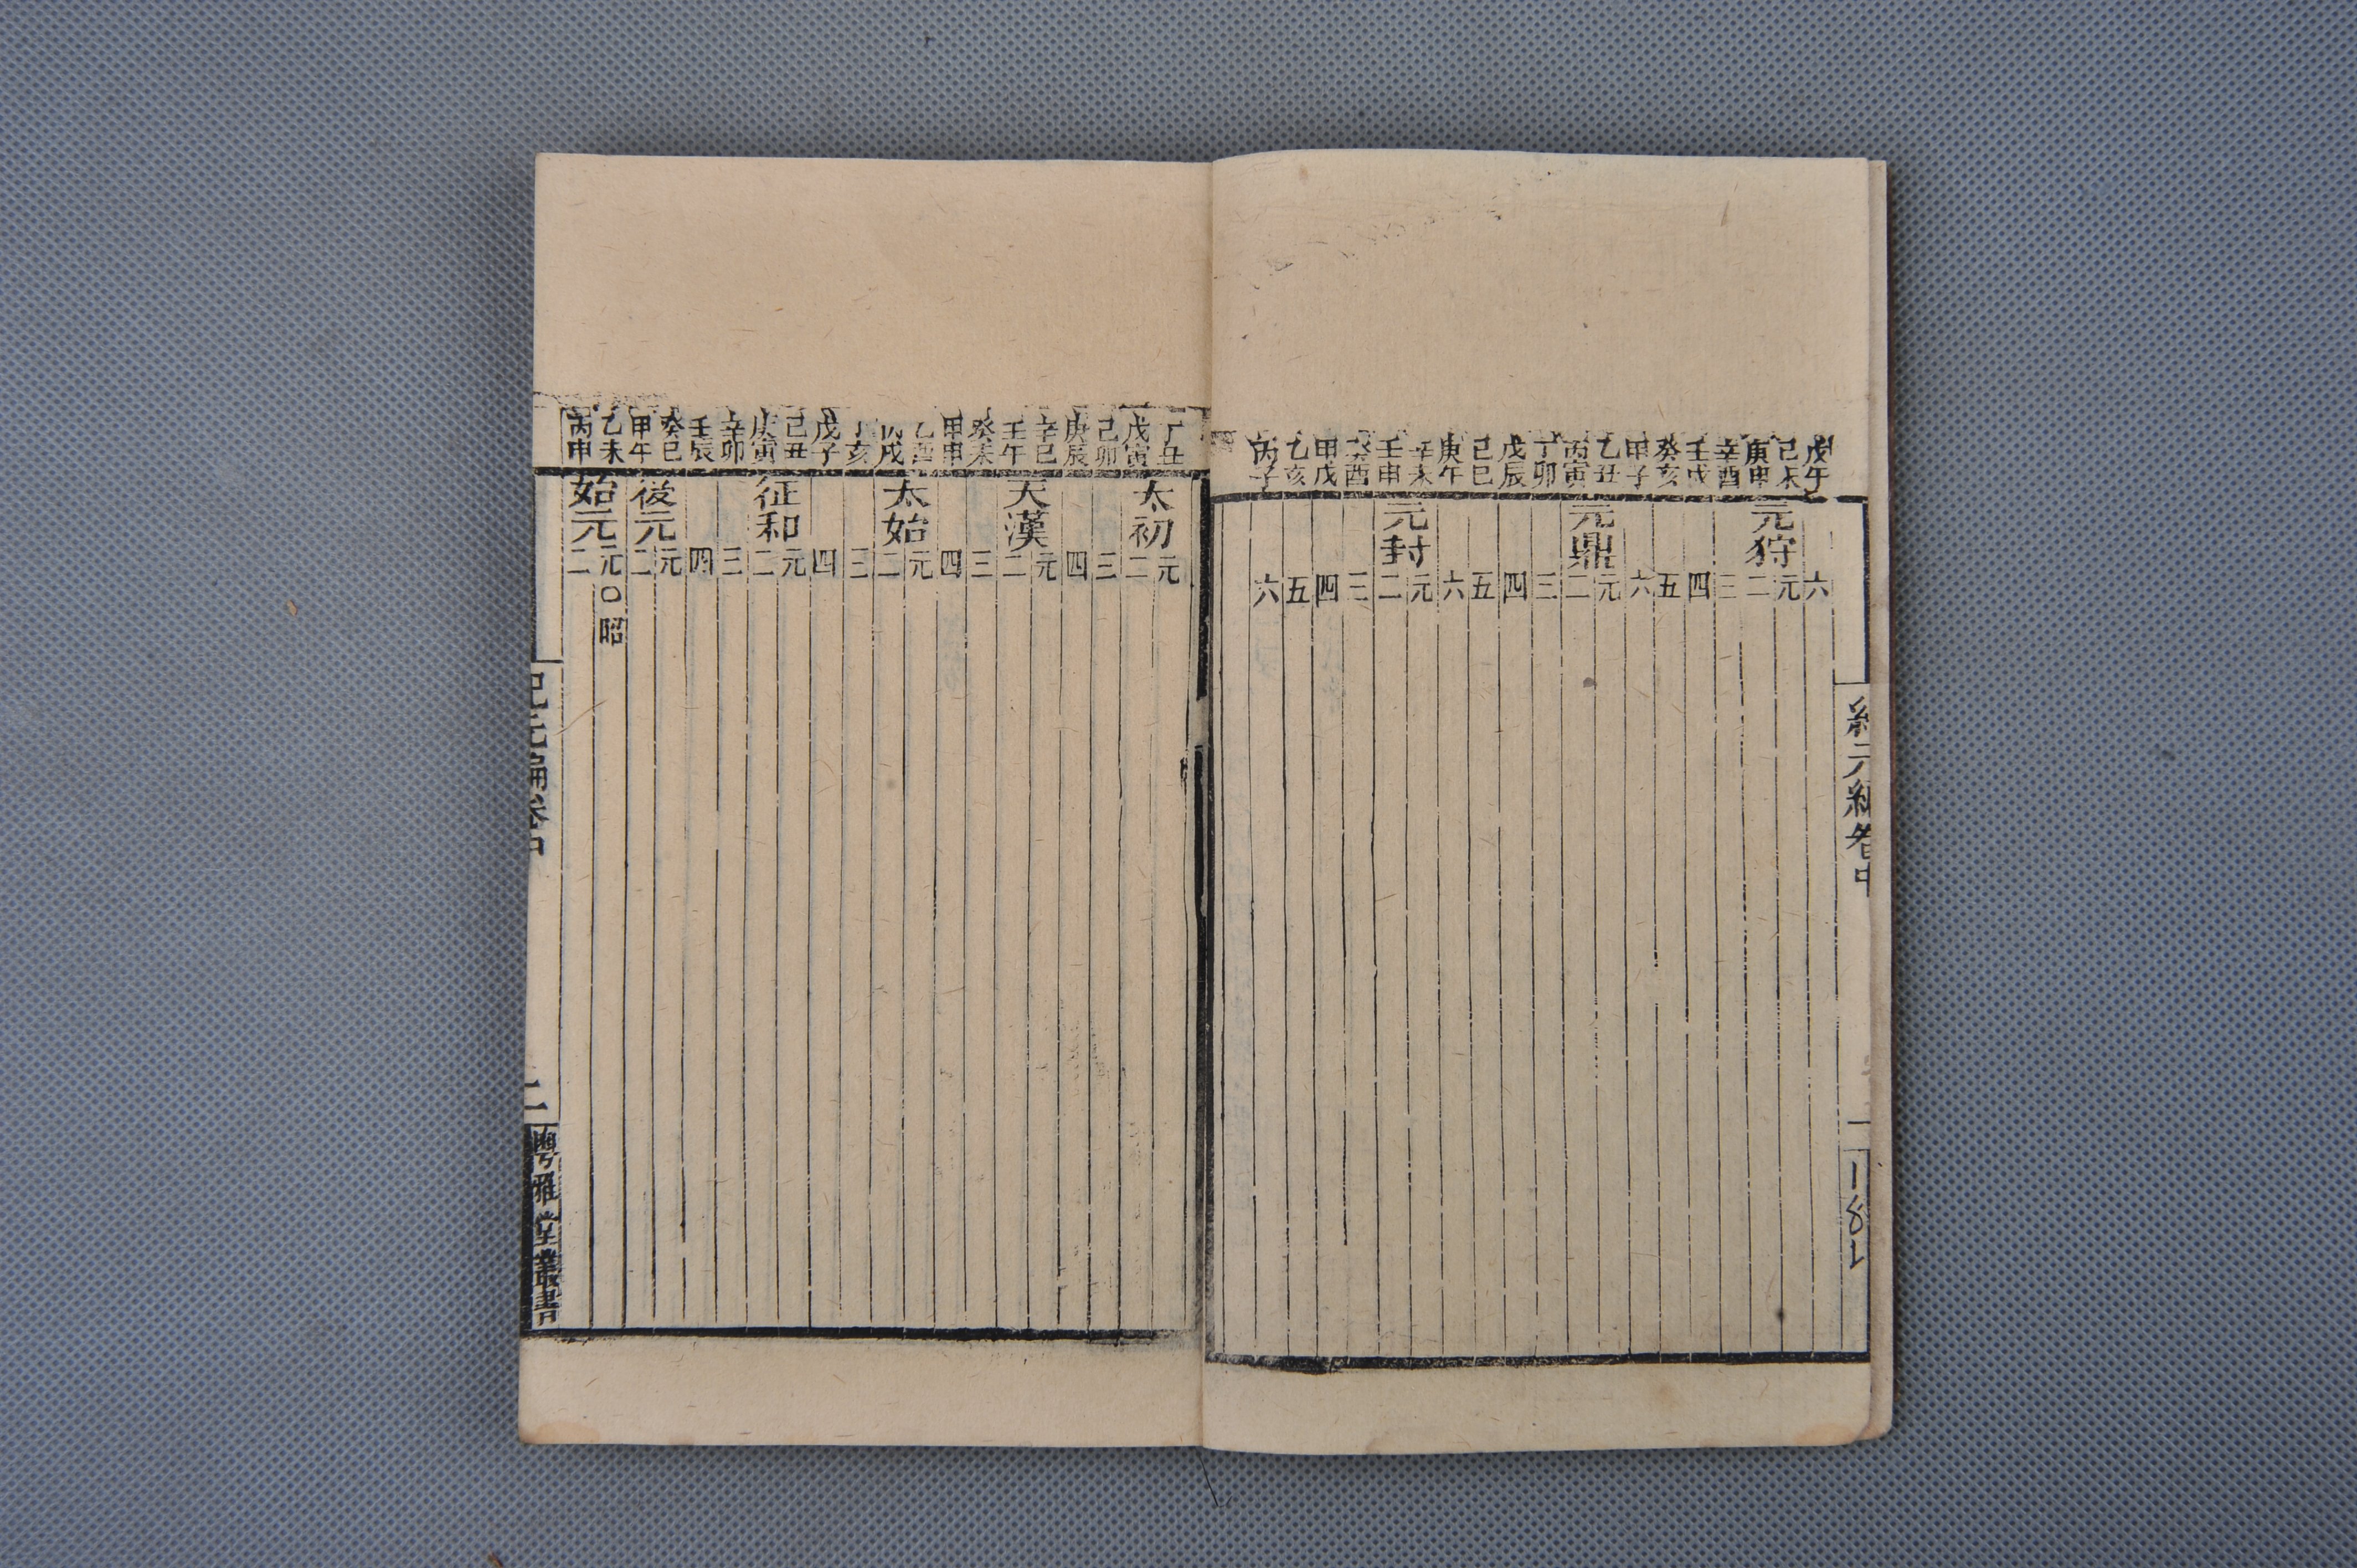 紀元編卷中
戊午 六
己未 元狩 元
庚申 二
辛酉 三
壬戌 四
癸亥 五
甲子 六
乙丑 元鼎 元
丙寅 二
丁卯 三
戊辰 四
己巳 五
庚午 六
辛未 元封 元
壬申 二
癸酉 三
甲戌 四
乙亥 五
丙子 六
丁丑 太初 元
戊寅 二
己卯 三
庚辰 四
辛巳 天漢 元
壬午 二
癸未 三
甲申 四
乙酉 太始 元
丙戌 二
丁亥 三
戊子 四
己丑 征和 元
庚寅 二
辛卯 三
壬辰 四
癸巳 後元 元
甲午 二
乙未 始元 元○昭
丙申 二
紀元編卷中
粵雅堂叢書